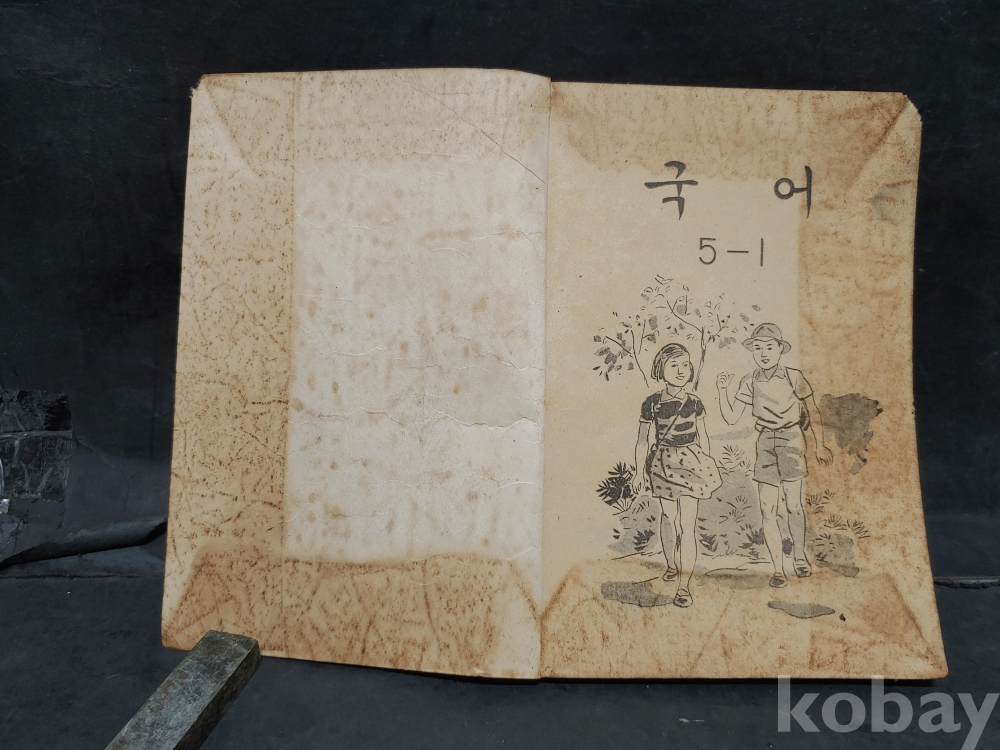 국 어
5-1
kobay